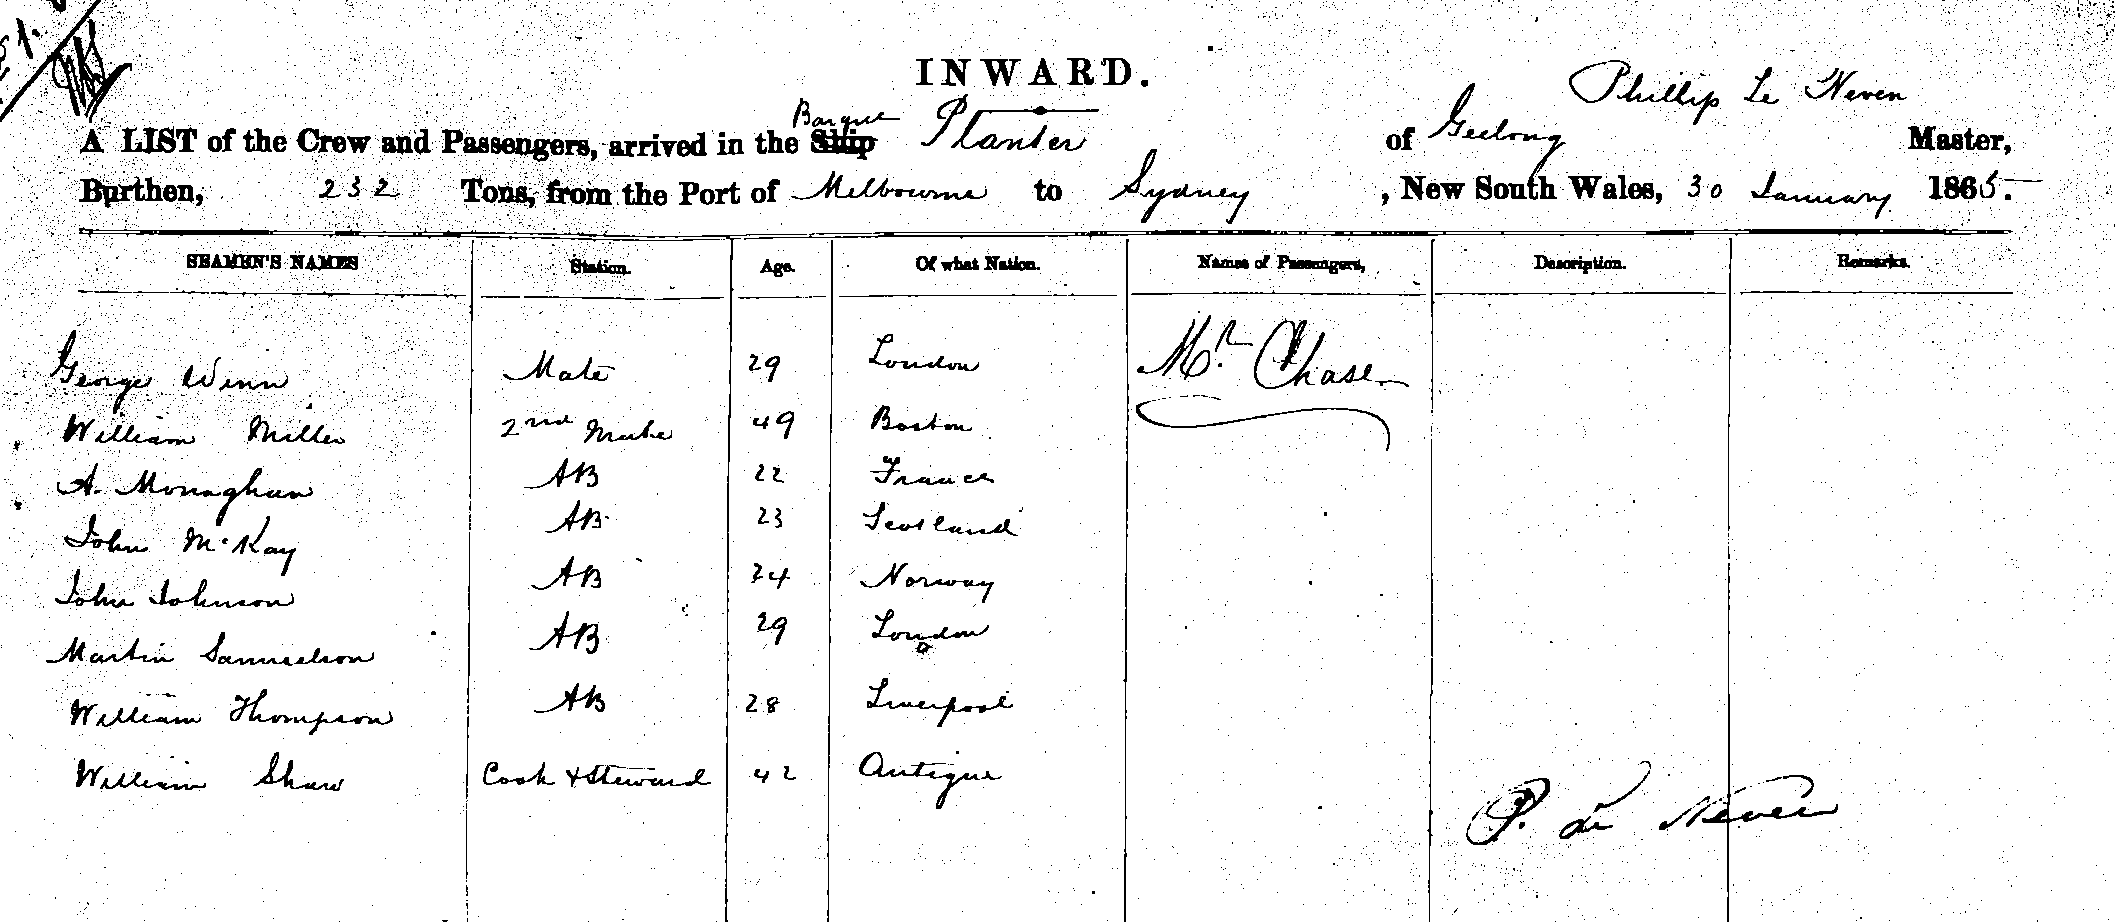 INWARD.
Phillip Le Neven
A LIST of the Crew and Passengers, arrived in the Ship Barque Planter of Geelong Master,
Burthen, 232 Tons, from the Port of Melbourne to Sydney , New South Wales, 30 January 1865.
SEAMEN'S NAMES Station. Age. Of what Nation. Names of Passengers, Description. Remarks.
George Winn Mate 29 London Mr. Chase
William Miller 2nd Mate 49 Boston
A. Monaghan AB 22 France
John McKay AB 23 Scotland
John Johnson AB 24 Norway
Martin Samuelson AB 29 London
William Thompson AB 28 Liverpool
William Shaw Cook & Steward 42 Antigua
P. Le Neven